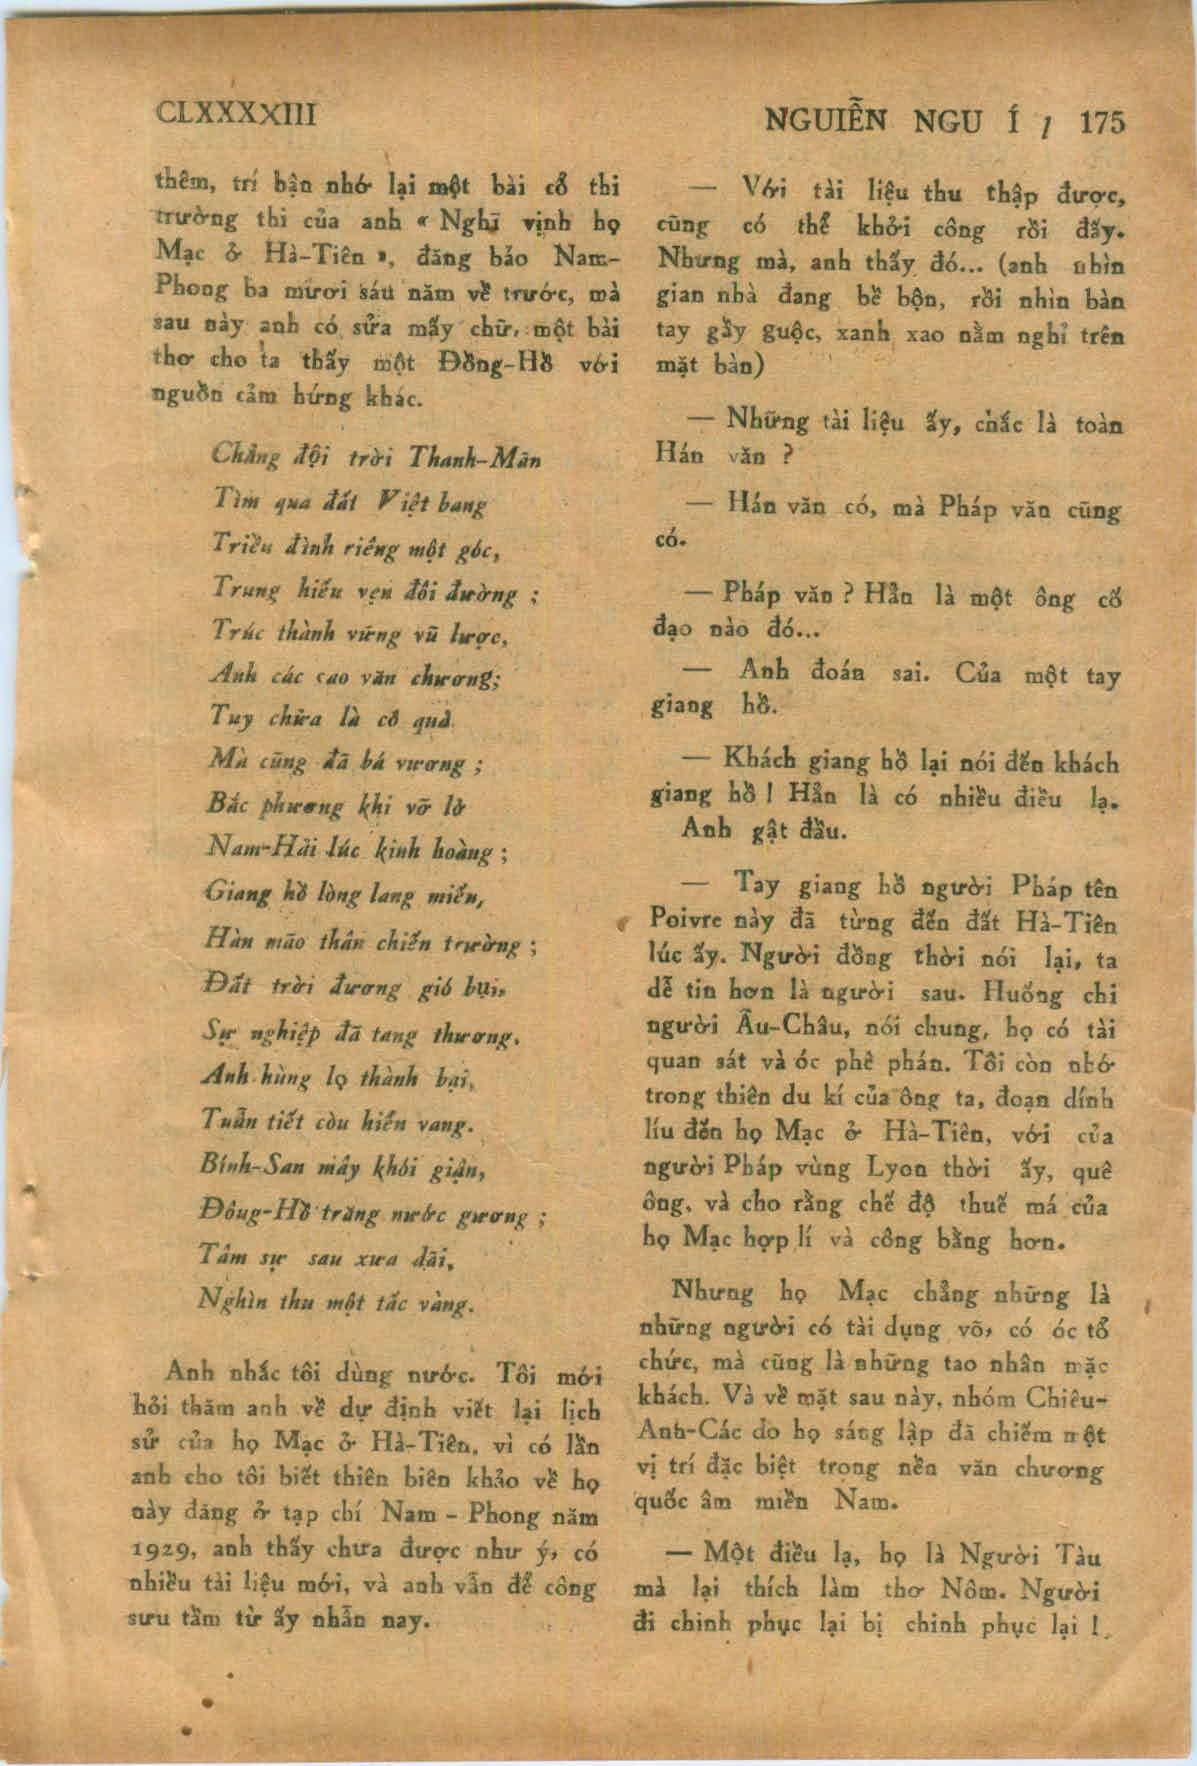 CLXXXXIII
NGUIỄN NGU Í / 175
thêm, trí bận nhớ lại một bài cổ thi
trường thi của anh « Nghĩ vịnh họ
Mạc ở Hà-Tiên », đăng báo Nam-
Phong ba mươi sáu năm về trước, mà
sau này anh có sửa mấy chữ, một bài
thơ cho ta thấy một Đông-Hồ với
nguồn cảm hứng khác.
Chẳng đội trời Thanh-Mãn
Tìm qua đất Việt bang
Triều đình riêng một góc,
Trung hiếu vẹn đôi đường ;
Trúc thành vững vũ lược,
Anh các cao văn chương;
Tuy chữa là cô quả
Mà cũng đã bá vương ;
Bắc phương khi vỡ lở
Nam-Hải lúc kinh hoàng ;
Giang hồ lòng lang miếu,
Hàn mão thân chiến trường ;
Đất trời đương gió bụi,
Sự nghiệp đã tang thương,
Anh hùng lọ thành bại,
Tuẫn tiết còn hiển vang.
Bình-San mây khói giận,
Đông-Hồ trăng nước gương ;
Tâm sự sau xưa dãi,
Nghìn thu một tấc vàng.
Anh nhắc tôi dùng nước. Tôi mới
hỏi thăm anh về dự định viết lại lịch
sử của họ Mạc ở Hà-Tiên, vì có lần
anh cho tôi biết thiên biên khảo về họ
này đăng ở tạp chí Nam - Phong năm
1929, anh thấy chưa được như ý, có
nhiều tài liệu mới, và anh vẫn để công
sưu tầm từ ấy nhẫn nay.
— Với tài liệu thu thập được,
cũng có thể khởi công rồi đấy.
Nhưng mà, anh thấy đó... (anh nhìn
gian nhà đang bề bộn, rồi nhìn bàn
tay gầy guộc, xanh xao nằm nghỉ trên
mặt bàn)
— Những tài liệu ấy, chắc là toàn
Hán văn ?
— Hán văn có, mà Pháp văn cũng
có.
— Pháp văn ? Hẳn là một ông cố
đạo nào đó...
— Anh đoán sai. Của một tay
giang hồ.
— Khách giang hồ lại nói đến khách
giang hồ ! Hẳn là có nhiều điều lạ.
Anh gật đầu.
— Tay giang hồ người Pháp tên
Poivre này đã từng đến đất Hà-Tiên
lúc ấy. Người đồng thời nói lại, ta
dễ tin hơn là người sau. Huống chi
người Âu-Châu, nói chung, họ có tài
quan sát và óc phê phán. Tôi còn nhớ
trong thiên du kí của ông ta, đoạn dính
líu đến họ Mạc ở Hà-Tiên, với của
người Pháp vùng Lyon thời ấy, quê
ông, và cho rằng chế độ thuế má của
họ Mạc hợp lí và công bằng hơn.
Nhưng họ Mạc chẳng những là
những người có tài dụng võ, có óc tổ
chức, mà cũng là những tao nhân mặc
khách. Và về mặt sau này, nhóm Chiêu-
Anh-Các do họ sáng lập đã chiếm một
vị trí đặc biệt trong nền văn chương
quốc âm miền Nam.
— Một điều lạ, họ là Người Tàu
mà lại thích làm thơ Nôm. Người
đi chinh phục lại bị chinh phục lại !